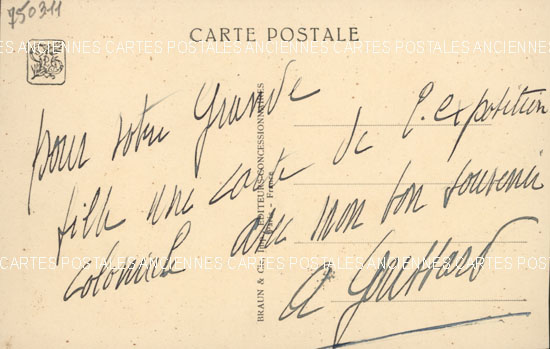 750311
CARTE POSTALE
ANCIENNES CARTES POSTALES ANCIENNES CARTES POSTALES ANCIENNES
pour votre grande
fille une carte de l'exposition
coloniale avec mon bon souvenir
BRAUN & Cie ÉDITEURS-CONCESSIONNAIRES
Paris - France
CARTES POSTALES ANCIENNES CARTES POSTALES ANCIENNES CARTES